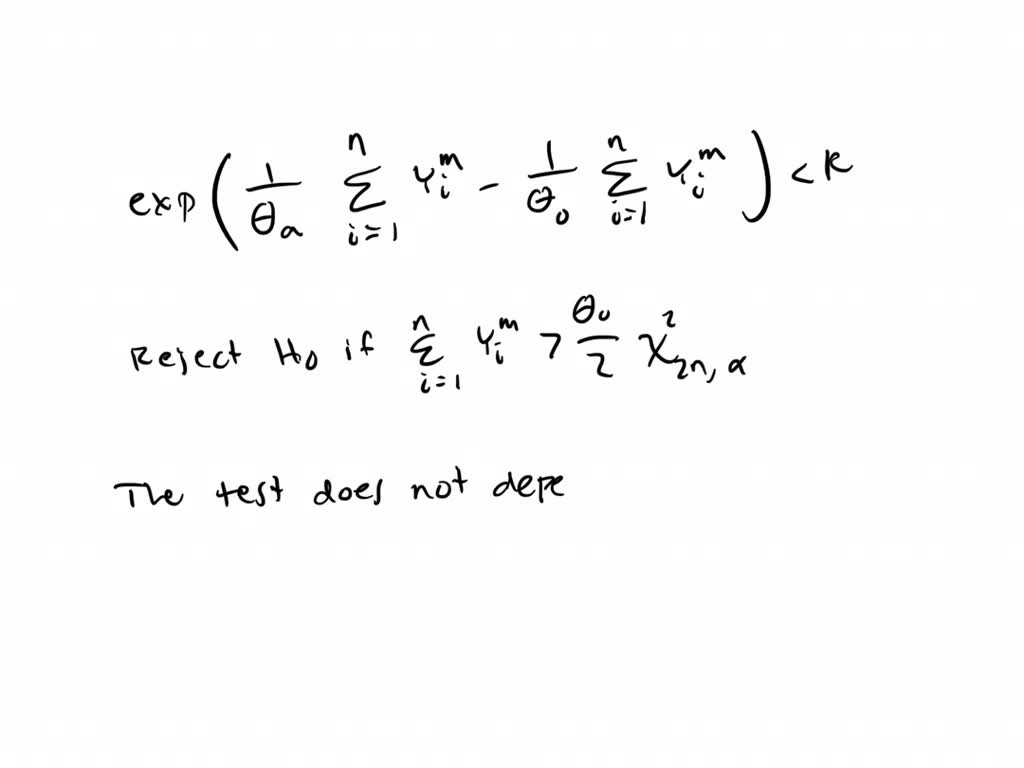 exp( 1/θₐ Σᵢ₌₁ⁿ Yᵢᵐ - 1/θ₀ Σᵢ₌₁ⁿ Yᵢᵐ ) < k
Reject H₀ if Σᵢ₌₁ⁿ Yᵢᵐ > θ₀/2 χ²₂ₙ, α
The test does not depe